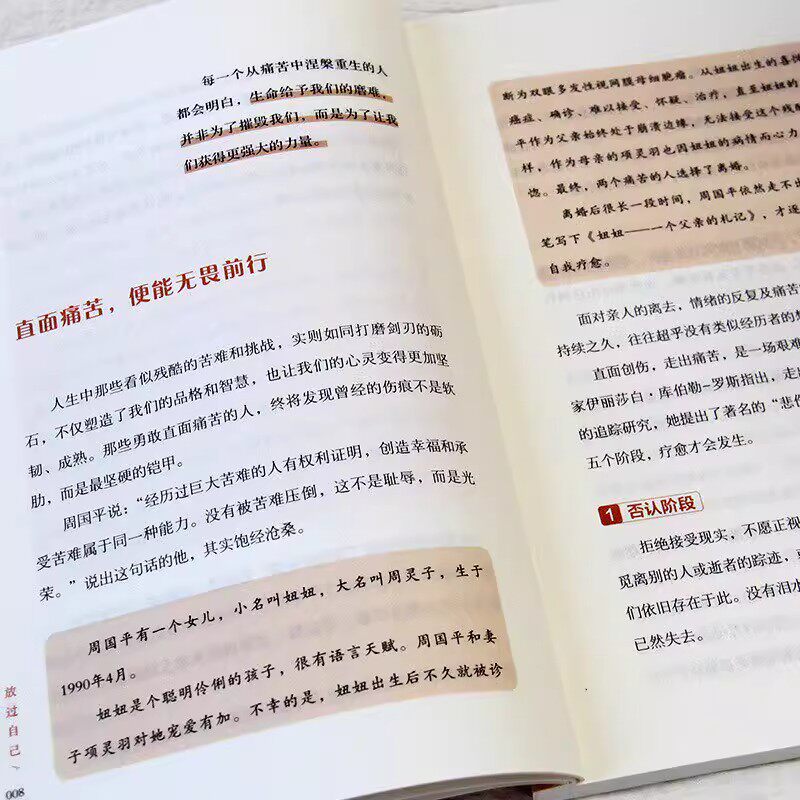 每一个从痛苦中涅槃重生的人
都会明白，生命给予我们的磨难，
并非为了摧毁我们，而是为了让我
们获得更强大的力量。
直面痛苦，便能无畏前行
人生中那些看似残酷的苦难和挑战，实则如同打磨剑刃的砺
石，不仅塑造了我们的品格和智慧，也让我们的心灵变得更加坚
韧、成熟。那些勇敢直面痛苦的人，终将发现曾经的伤痕不是软
肋，而是最坚硬的铠甲。
周国平说：“经历过巨大苦难的人有权利证明，创造幸福和承
受苦难属于同一种能力。没有被苦难压倒，这不是耻辱，而是光
荣。”说出这句话的他，其实饱经沧桑。
周国平有一个女儿，小名叫妞妞，大名叫周灵子，生于
1990年4月。
妞妞是个聪明伶俐的孩子，很有语言天赋。周国平和妻
子项灵羽对她宠爱有加。不幸的是，妞妞出生后不久就被诊
放过自己
008
断为双眼多发性视网膜母细胞瘤。从妞妞出生的喜悦
癌症、确诊、难以接受、怀疑、治疗，直至妞妞的
平作为父亲始终处于崩溃边缘，无法接受这个残酷
样，作为母亲的项灵羽也因妞妞的病情而心力
惫。最终，两个痛苦的人选择了离婚。
离婚后很长一段时间，周国平依然走不出
笔写下《妞妞——一个父亲的札记》，才逐
自我疗愈。
面对亲人的离去，情绪的反复及痛苦
持续之久，往往超乎没有类似经历者的想
直面创伤，走出痛苦，是一场艰难
家伊丽莎白·库伯勒-罗斯指出，走出
的追踪研究，她提出了著名的“悲伤
五个阶段，疗愈才会发生。
1 否认阶段
拒绝接受现实，不愿正视
觅离别的人或逝者的踪迹，
们依旧存在于此。没有泪水
已然失去。